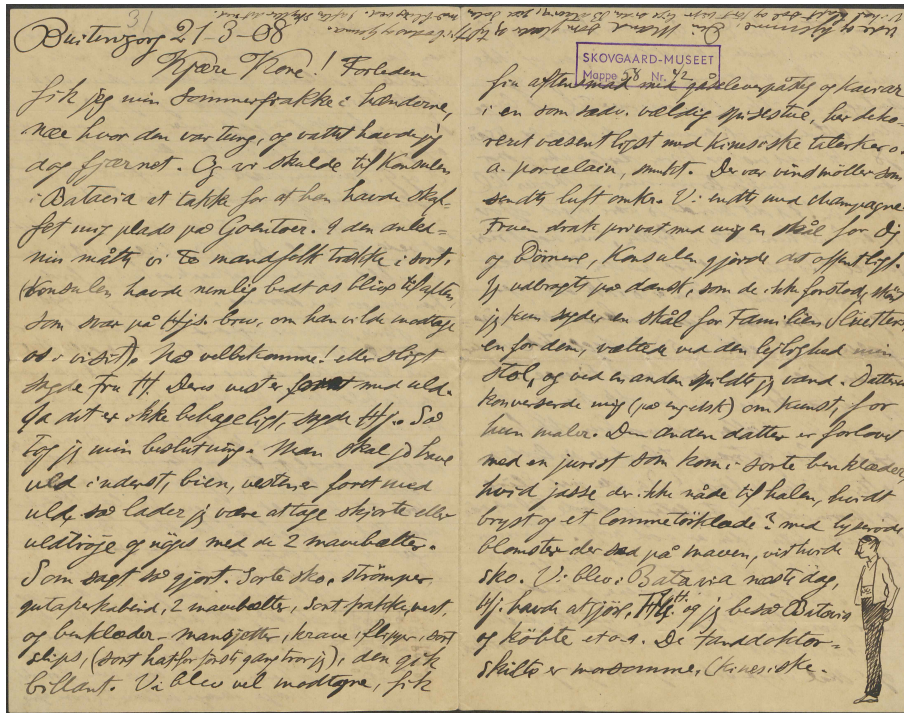 31
Buitenzorg 27-3-08
Kjære Kone! Forleden
fik jeg min Sommerfrakke i hænderne,
næe hvor den var tung, og vattet havde jeg
dog fjærnet. Og vi skulde til Konsulen
i Batavia at takke for at han havde skaf-
fet mig plads på Goentoer. I den anled-
nin måtte vi To mandfolk trække i sort.
(Konsulen havde nemlig bedt os blive til aften,
som svar på Hjs. brev, om han vilde modtage
os i visit). Nå velbekomme! eller sligt
sagde Fru H. Deres vest er foret med uld.
Ja det er ikke behageligt, sagde Hj. Så
tog jeg min beslutning. Man skal jo have
uld inderst, bien, vesten er foret med
uld, så lader jeg være at tage skjorte eller
uldtrøje og nøjes med de 2 mavebælter.
Som sagt så gjort. Sorte sko, strömper,
2 mavebælter, sort frakke, vest,
og benklæder - mansjetter, krave, flipper, sort
slips, (sort hat for første gang tror jeg), den gik
billant. Vi blev vel modtagne, fik
SKOVGAARD-MUSEET
Mappe 58 Nr. 42
fin aftensmad med gåseleverpåtég og kaviar
i en som sædv. vældig spisestue, her deko-
reret væsentligst med kinesiske talerkener o.
a. porcelain, smukt. Der var vindmöller som
sendte luft omkr. Vi endte med champagne
Fruen drak privat med mig en skål for Dig
og Börnene, Konsulen gjorde det offentligt.
Jeg udbragte på dansk, som de ikke forstod,
jeg kun syder en skål for Familien
en for dem, væltede ved den lejlighed min
stol, og ved en anden spildte jeg vand. Datteren
konverserede mig (på engelsk) om kunst, for
hun maler. Den anden datter er forlovet
med en jurist som kom i sorte benklæder,
hvid jakke der ikke nåde til halen, hvidt
bryst og et lommetörklæde? med lyseröde
blomster der sad på maven, vist hvide
sko. Vi blev i Batavia næste dag,
Hj. havde at gjöre, og jeg beså Batavia
og köbte et o. a. De tanddoktor-
skilte er morsomme, (kinesiske.